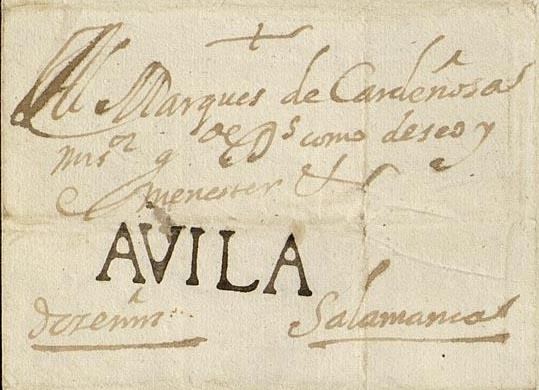 Al Marques de Cardeñosa
mi sr q Ds como deseo y
menester &
AVILA
Salamanca